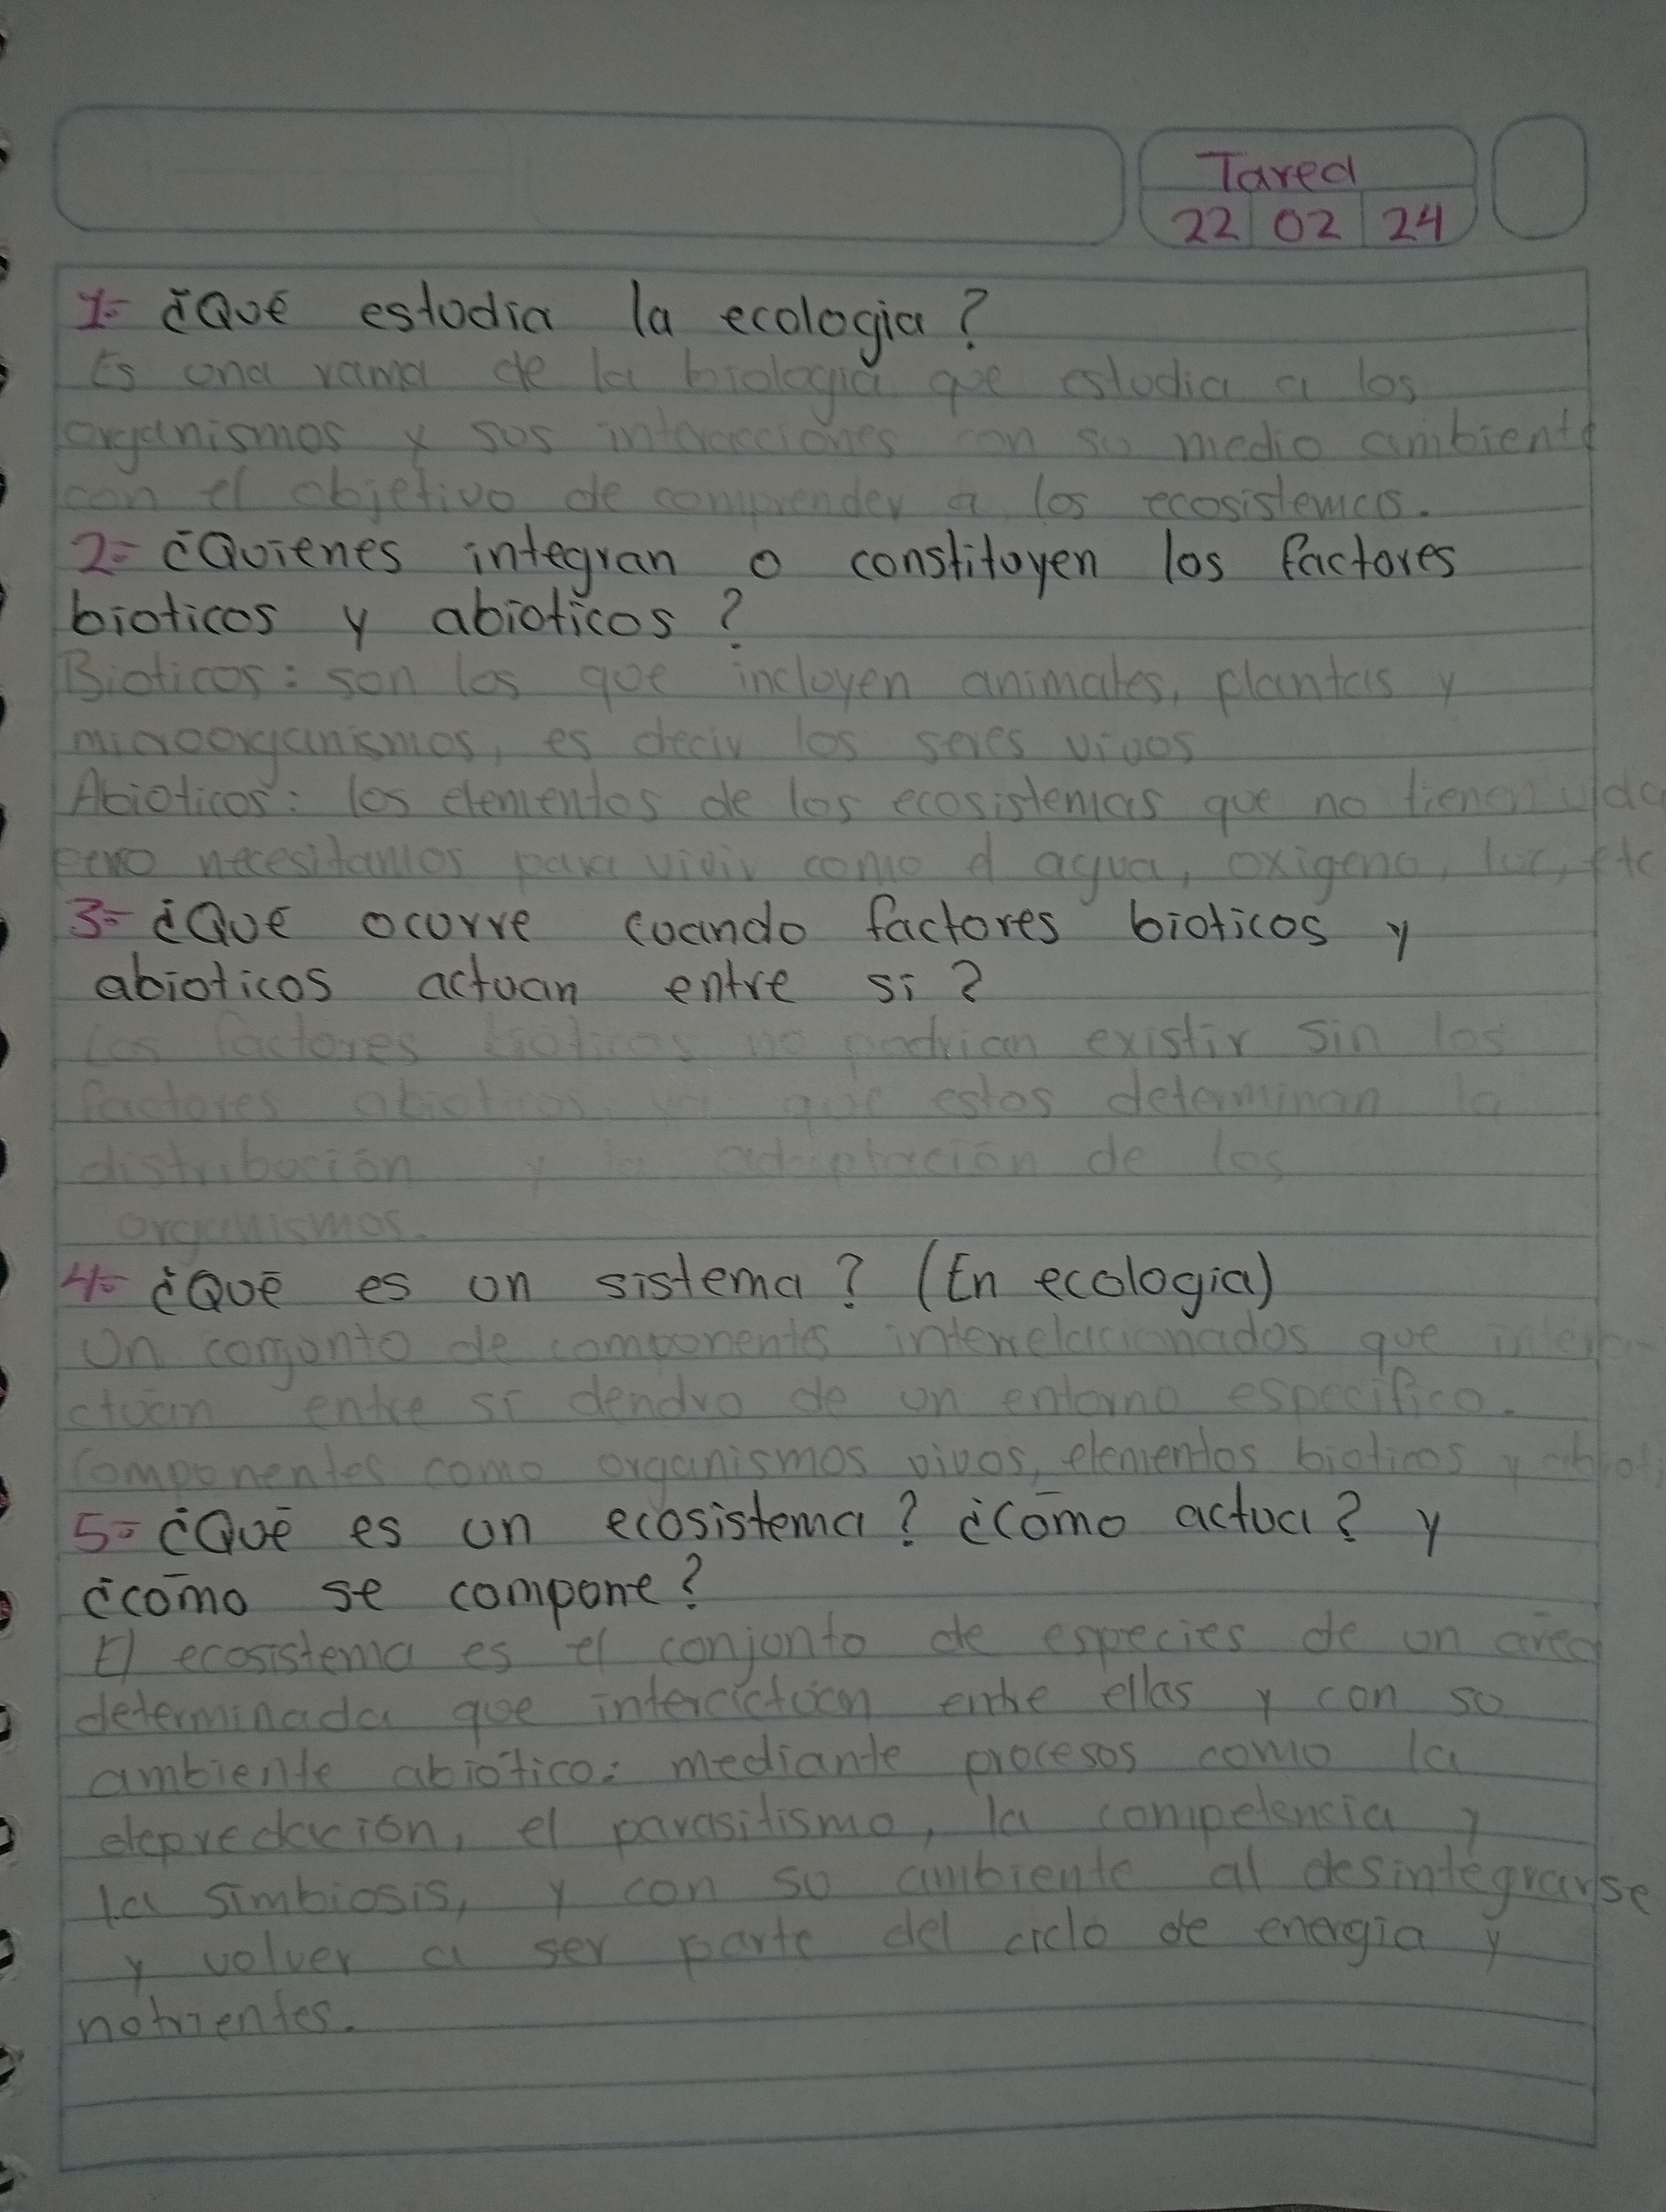 Tarea
22 02 24
1- ¿Qué estudia la ecologia?
Es una rama de la biologia que estudia a los
organismos y sus interacciones con su medio ambiente
con el objetivo de comprender a los ecosistemas.
2- ¿Quienes integran o constituyen los factores
bioticos y abioticos?
Bioticos: son los que incluyen animales, plantas y
microorganismos, es decir los seres vivos
Abioticos: los elementos de los ecosistemas que no tienen vida
pero necesitamos para vivir como el agua, oxigeno, luz, etc
3- ¿Qué ocurre cuando factores bioticos y
abioticos actuan entre si?
Los factores bioticos no podrian existir sin los
factores abioticos ya que estos determinan la
distribución y la adaptación de los
organismos.
4- ¿Qué es un sistema? (En ecologia)
Un conjunto de componentes interrelacionados que intera-
ctúan entre sí dendro de un entorno especifico.
Componentes como organismos vivos, elementos bioticos y abioti
5- ¿Qué es un ecosistema? ¿Cómo actua? y
¿cómo se compone?
El ecosistema es el conjunto de especies de un área
determinada que interactúan entre ellas y con su
ambiente abiótico: mediante procesos como la
depredación, el parasitismo, la competencia y
la simbiosis, y con su ambiente al desintegrarse
y volver a ser parte del ciclo de energía y
nutrientes.